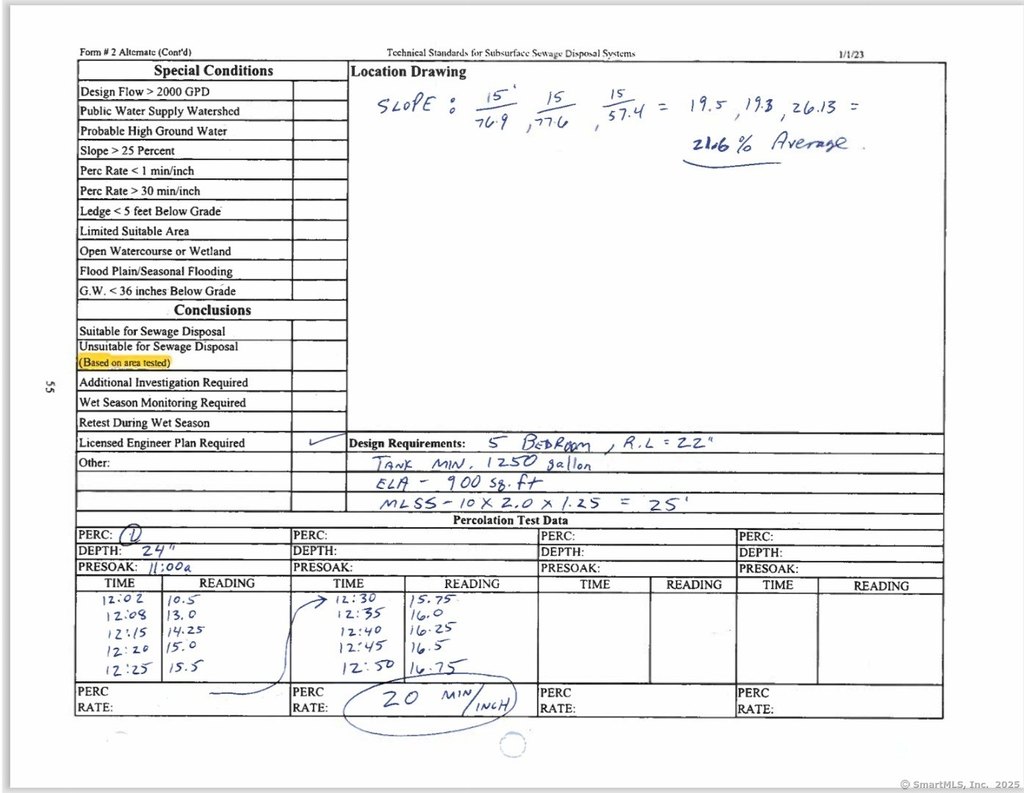 Form # 2 Alternate (Cont'd) Technical Standards for Subsurface Sewage Disposal Systems 1/1/23
Special Conditions
Design Flow > 2000 GPD
Public Water Supply Watershed
Probable High Ground Water
Slope > 25 Percent
Perc Rate < 1 min/inch
Perc Rate > 30 min/inch
Ledge < 5 feet Below Grade
Limited Suitable Area
Open Watercourse or Wetland
Flood Plain/Seasonal Flooding
G.W. < 36 inches Below Grade
Conclusions
Suitable for Sewage Disposal
Unsuitable for Sewage Disposal
(Based on area tested)
Additional Investigation Required
Wet Season Monitoring Required
Retest During Wet Season
Licensed Engineer Plan Required ✓
Other:
Location Drawing
SLOPE : 15'/76.9 , 15/77.6 , 15/57.4 = 19.5 , 19.3 , 26.13 =
21.6 % Average .
Design Requirements: 5 BEDROOM , R.L = 22"
TANK MIN. 1250 gallon
ELA - 900 sq. ft
MLSS - 10 X 2.0 X 1.25 = 25'
Percolation Test Data
PERC: 1 PERC: PERC: PERC:
DEPTH: 24" DEPTH: DEPTH: DEPTH:
PRESOAK: 11:00a PRESOAK: PRESOAK: PRESOAK:
TIME READING TIME READING TIME READING TIME READING
12:02 10.5 12:30 15.75
12:08 13.0 12:35 16.0
12:15 14.25 12:40 16.25
12:20 15.0 12:45 16.5
12:25 15.5 12:50 16.75
PERC PERC PERC PERC
RATE: RATE: 20 MIN/INCH RATE: RATE:
55
© SmartMLS, Inc. 2025